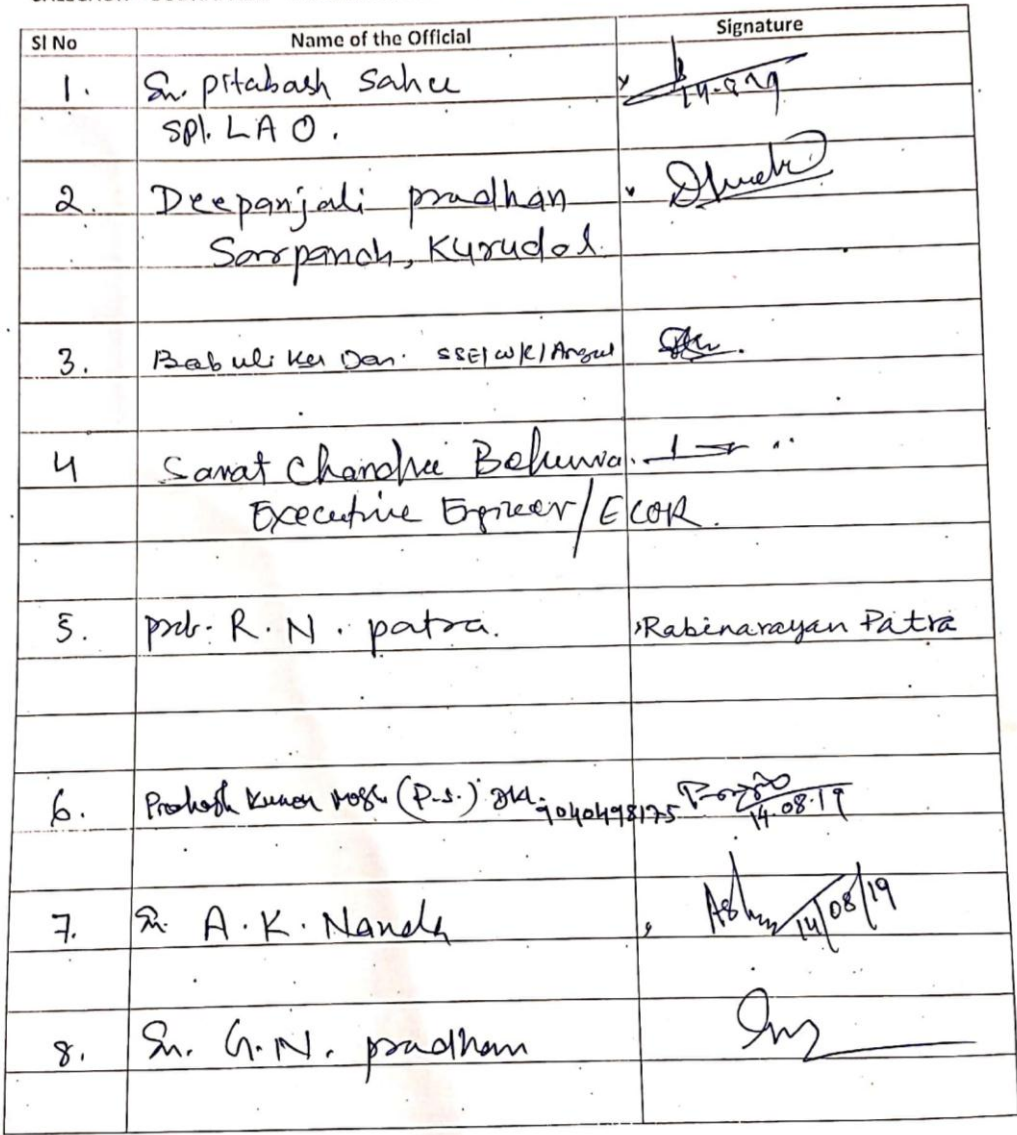 Sl No Name of the Official Signature
1. Sri. pitabash Sahu 14.8.19
Spl. L A O.
2. Deepanjali pradhan
Sarpanch, Kurudol.
3. Babuli Ku Das. SSE/W/C/Angul
4 Sarat Chandra Behura.
Executive Engineer/ECOR.
5. prof. R. N. patra. Rabinarayan Patra
6. Prakash Kumar (P.S.) 9040498175 14.08.19
7. Sri. A. K. Nanda 14/08/19
8. Sri. G. N. pradhan